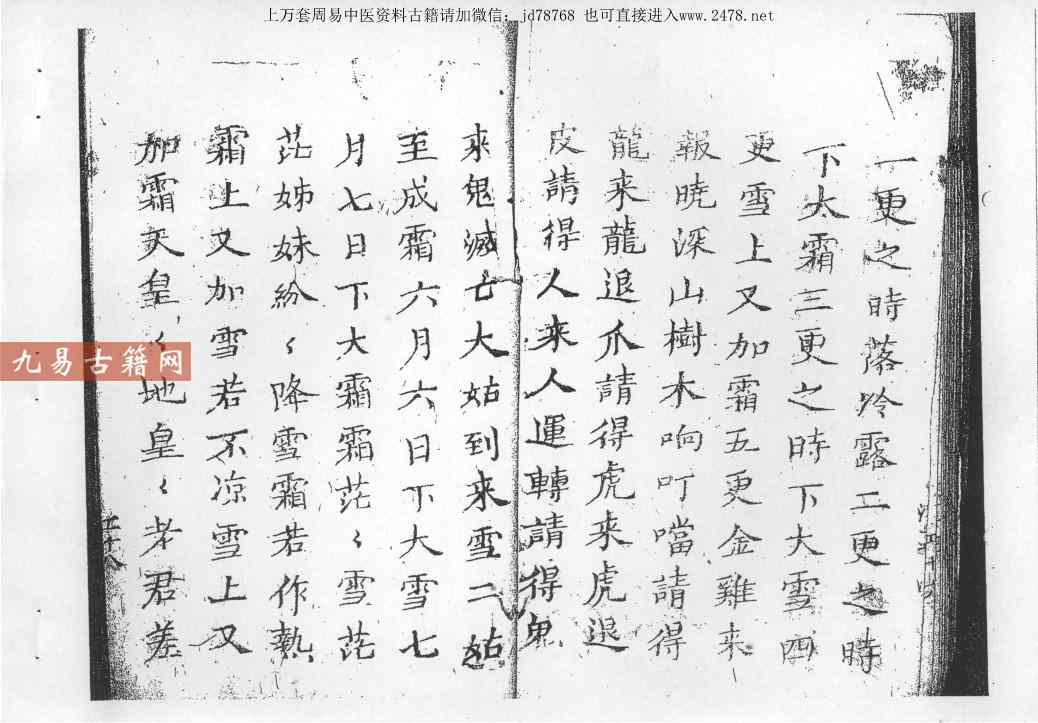 上万套周易中医资料古籍请加微信：jd78768 也可直接进入www.2478.net
一更之時落冷露二更之時
下大霜三更之時下大雪四
更雪上又加霜五更金雞来
報暁深山樹木响叮噹請得
龍来龍退爪請得虎来虎退
皮請得人来人運轉請得鬼
来鬼滅亡大姑到来雪二姑
至成霜六月六日下大雪七
月七日下大霜霜茫〻雪茫
茫姊妹紛〻降雪霜若作熱
霜上又加雪若不凉雪上又
加霜天皇〻地皇〻老君差
九易古籍网